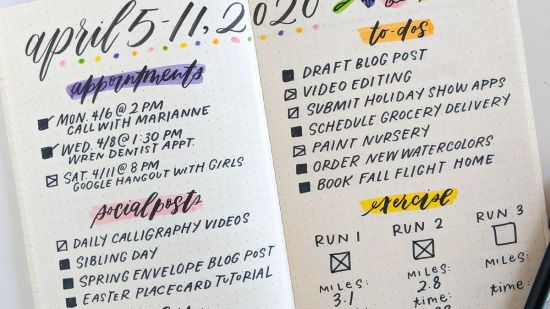 april 5-11, 2020
appointments
MON. 4/6 @ 2 PM
CALL WITH MARIANNE
WED. 4/8 @ 1:30 PM
WREN DENTIST APPT.
SAT. 4/11 @ 8 PM
GOOGLE HANGOUT WITH GIRLS
social posts
DAILY CALLIGRAPHY VIDEOS
SIBLING DAY
SPRING ENVELOPE BLOG POST
EASTER PLACECARD TUTORIAL
to-dos
DRAFT BLOG POST
VIDEO EDITING
SUBMIT HOLIDAY SHOW APPS
SCHEDULE GROCERY DELIVERY
PAINT NURSERY
ORDER NEW WATERCOLORS
BOOK FALL FLIGHT HOME
exercise
RUN 1 RUN 2 RUN 3
MILES: MILES: MILES:
3.1 2.8
time: time: